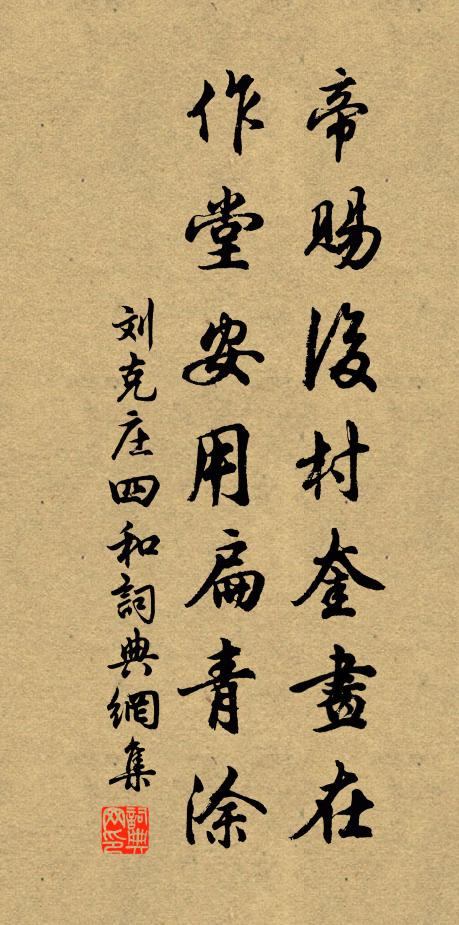 帝賜後村奎畫在
作堂安用扁青涂
刘克庄四和詞典網集
詞典网印